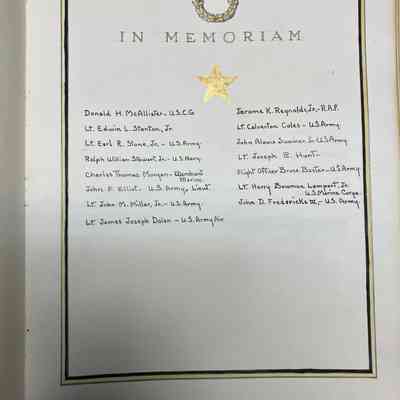 IN MEMORIAM
Donald H. McAllister - U.S.C.G.
Lt. Edwin L. Stanton, Jr.
Lt. Earl R. Stone, Jr. - U.S. Army
Ralph William Stewart, Jr. - U.S. Navy
Charles Thomas Morgan - Merchant
Marine
John F. Elliot - U.S. Army, Lieut.
Lt. John M. Miller, Jr. - U.S. Army
Lt. James Joseph Dolan - U.S. Army Air
Jerome K. Reynolds, Jr. - R.A.F.
Lt. Calverton Coles - U.S. Army
John Alexis Sumner, Jr. U.S. Army
Lt. Joseph B. Hunt -
Flight Officer Bruce Baxter - U.S. Army
Lt. Harry Bowman Lampert, Jr.
U.S. Marine Corps
John D. Fredericks III, - U.S. Army